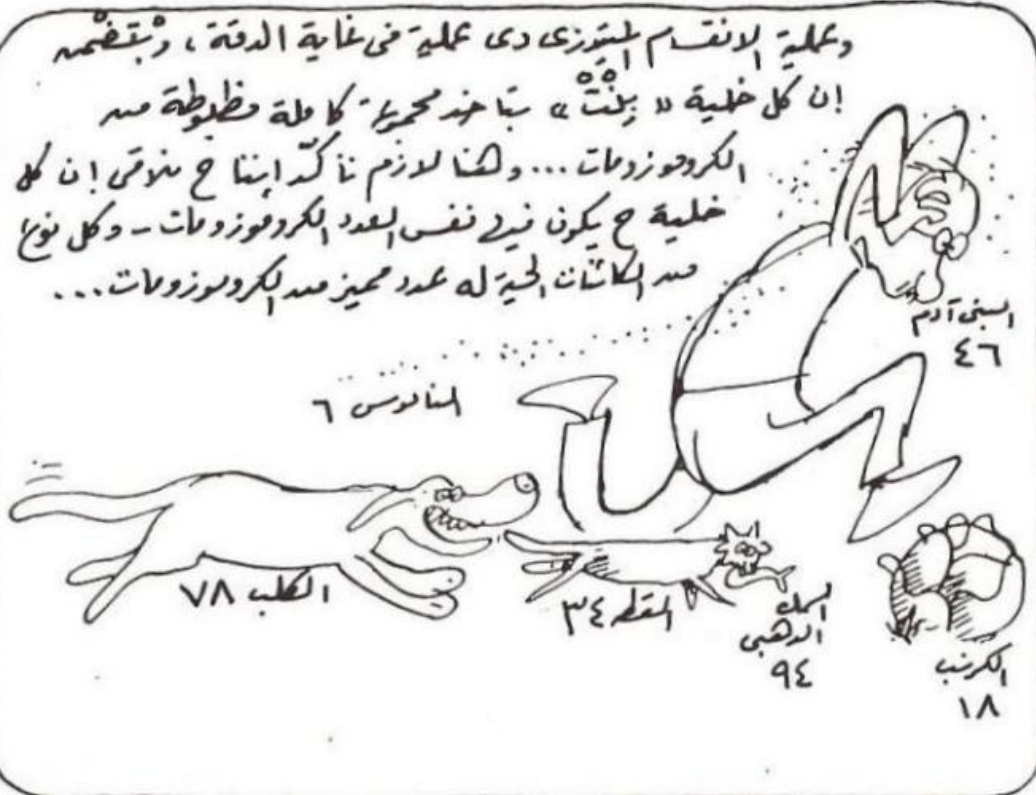 وعملية الانقسام الميتوزى دى عملية فى غاية الدقة ، وْبتضْمن
إن كل خلية « بِنْتْ » بتاخد مجموعة كاملة مظبوطة من
الكروموزومات ... وهنا لازم نأكّد إننا ح نلاقى إن كل
خلية ح يكون فيها نفس العدد الكروموزومات - وكل نوع
من الكائنات الحية له عدد مميز من الكروموزومات ...
البنى آدم
٤٦
الناموس ٦
الكلب ٧٨
القط ٣٤
السمك
الدهبى
٩٤
الكرنب
١٨